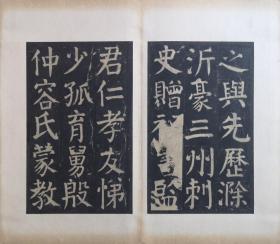 之與先歷滁
沂豪三州刺
史贈祕書監
君仁孝友悌
少孤育舅殷
仲容氏蒙教